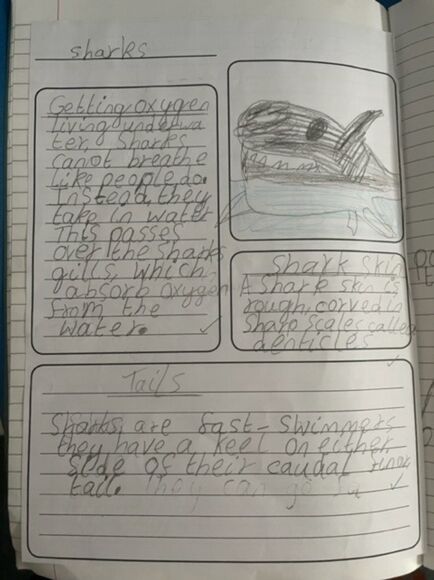 sharks
Getting oxygen
living underwa
ter, Sharks
canot breathe
like people do.
Instead, they
take in water
This passes
over the sharks
gills, which
absorb oxygen
from the
water.
Shark skin
A Shark skin is
rough, corved in
sharp scales called
denticles
Tails
Sharks are fast-swimmers
they have a keel on either
side of their caudal
tail. They can go